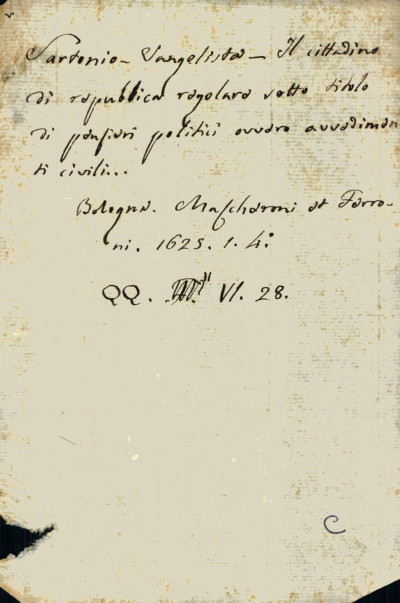 Sartorio - Vangelista - Il cittadino
di republica regolare sotto titolo
di pensieri politici overo avvedimen
ti civili...
Bologna. Mascheroni et Ferro-
ni. 1625. 1. 4.°
QQ. VI. 28.
C